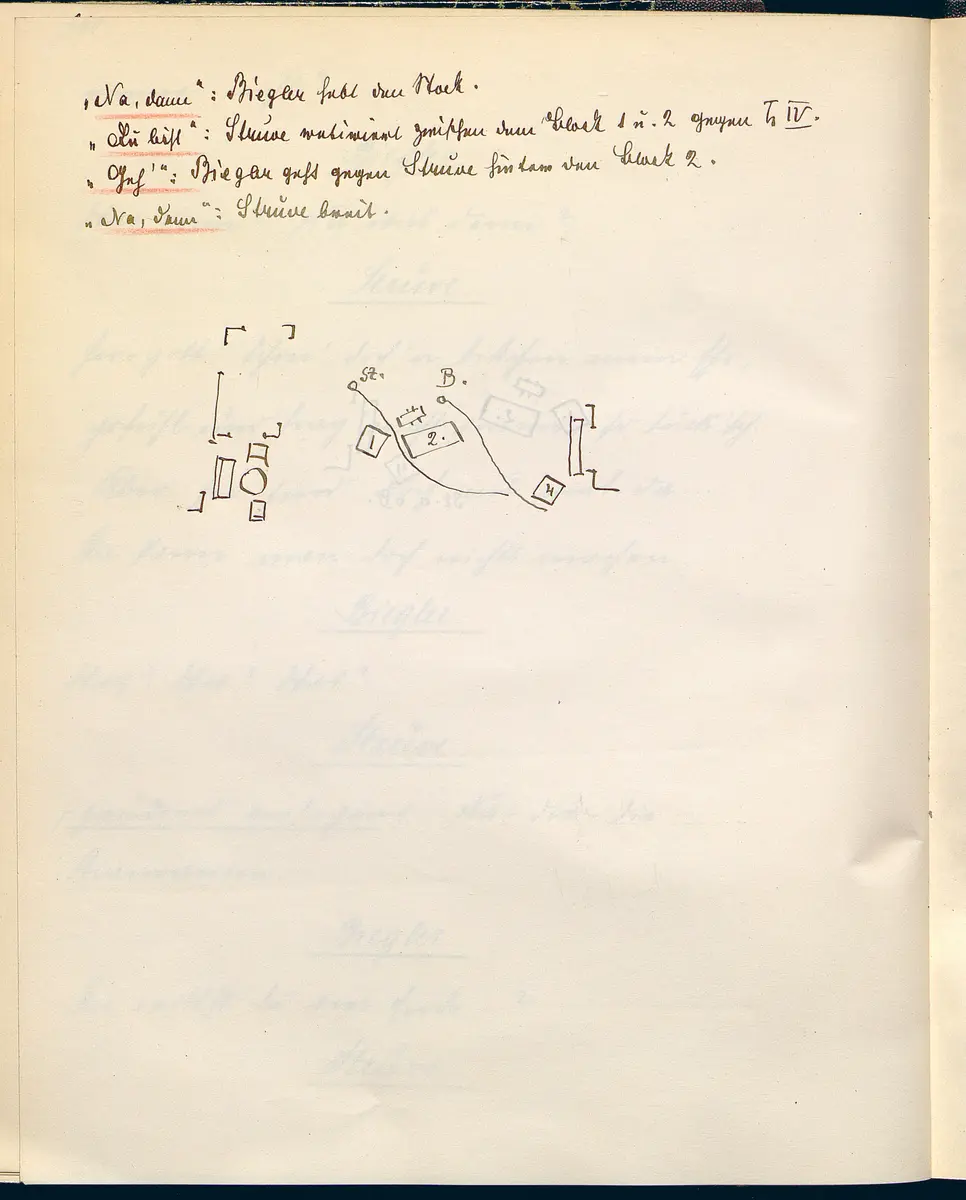 „Na, dann“: Biegler hebt den Stock.
„Du bist“: Struve retiriert zwischen dem Block 1 u. 2 gegen T. IV.
„Geh'“: Biegler geht gegen Struve hinter den Block 2.
„Na, denn“: Struve breit.
St. B.
1 2. 4